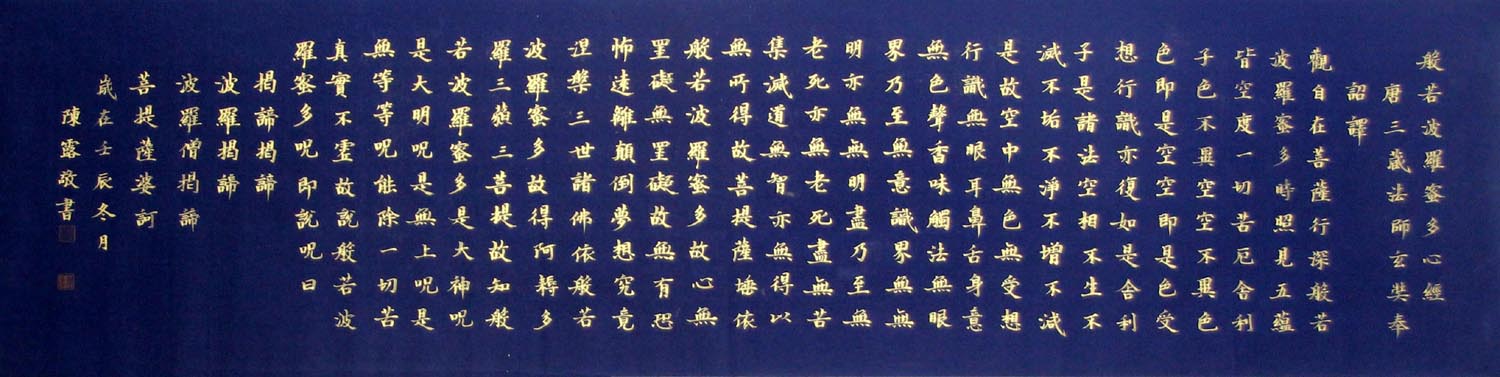 般若波羅蜜多心經
唐三藏法師玄奘奉
詔譯
觀自在菩薩行深般若
波羅蜜多時照見五蘊
皆空度一切苦厄舍利
子色不異空空不異色
色即是空空即是色受
想行識亦復如是舍利
子是諸法空相不生不
滅不垢不淨不增不減
是故空中無色無受想
行識無眼耳鼻舌身意
無色聲香味觸法無眼
界乃至無意識界無無
明亦無無明盡乃至無
老死亦無老死盡無苦
集滅道無智亦無得以
無所得故菩提薩埵依
般若波羅蜜多故心無
罣礙無罣礙故無有恐
怖遠離顛倒夢想究竟
涅槃三世諸佛依般若
波羅蜜多故得阿耨多
羅三藐三菩提故知般
若波羅蜜多是大神呪
是大明呪是無上呪是
無等等呪能除一切苦
真實不虛故說般若波
羅蜜多呪即說呪曰
揭諦揭諦
波羅揭諦
波羅僧揭諦
菩提薩婆訶
歲在壬辰冬月
陳露敬書